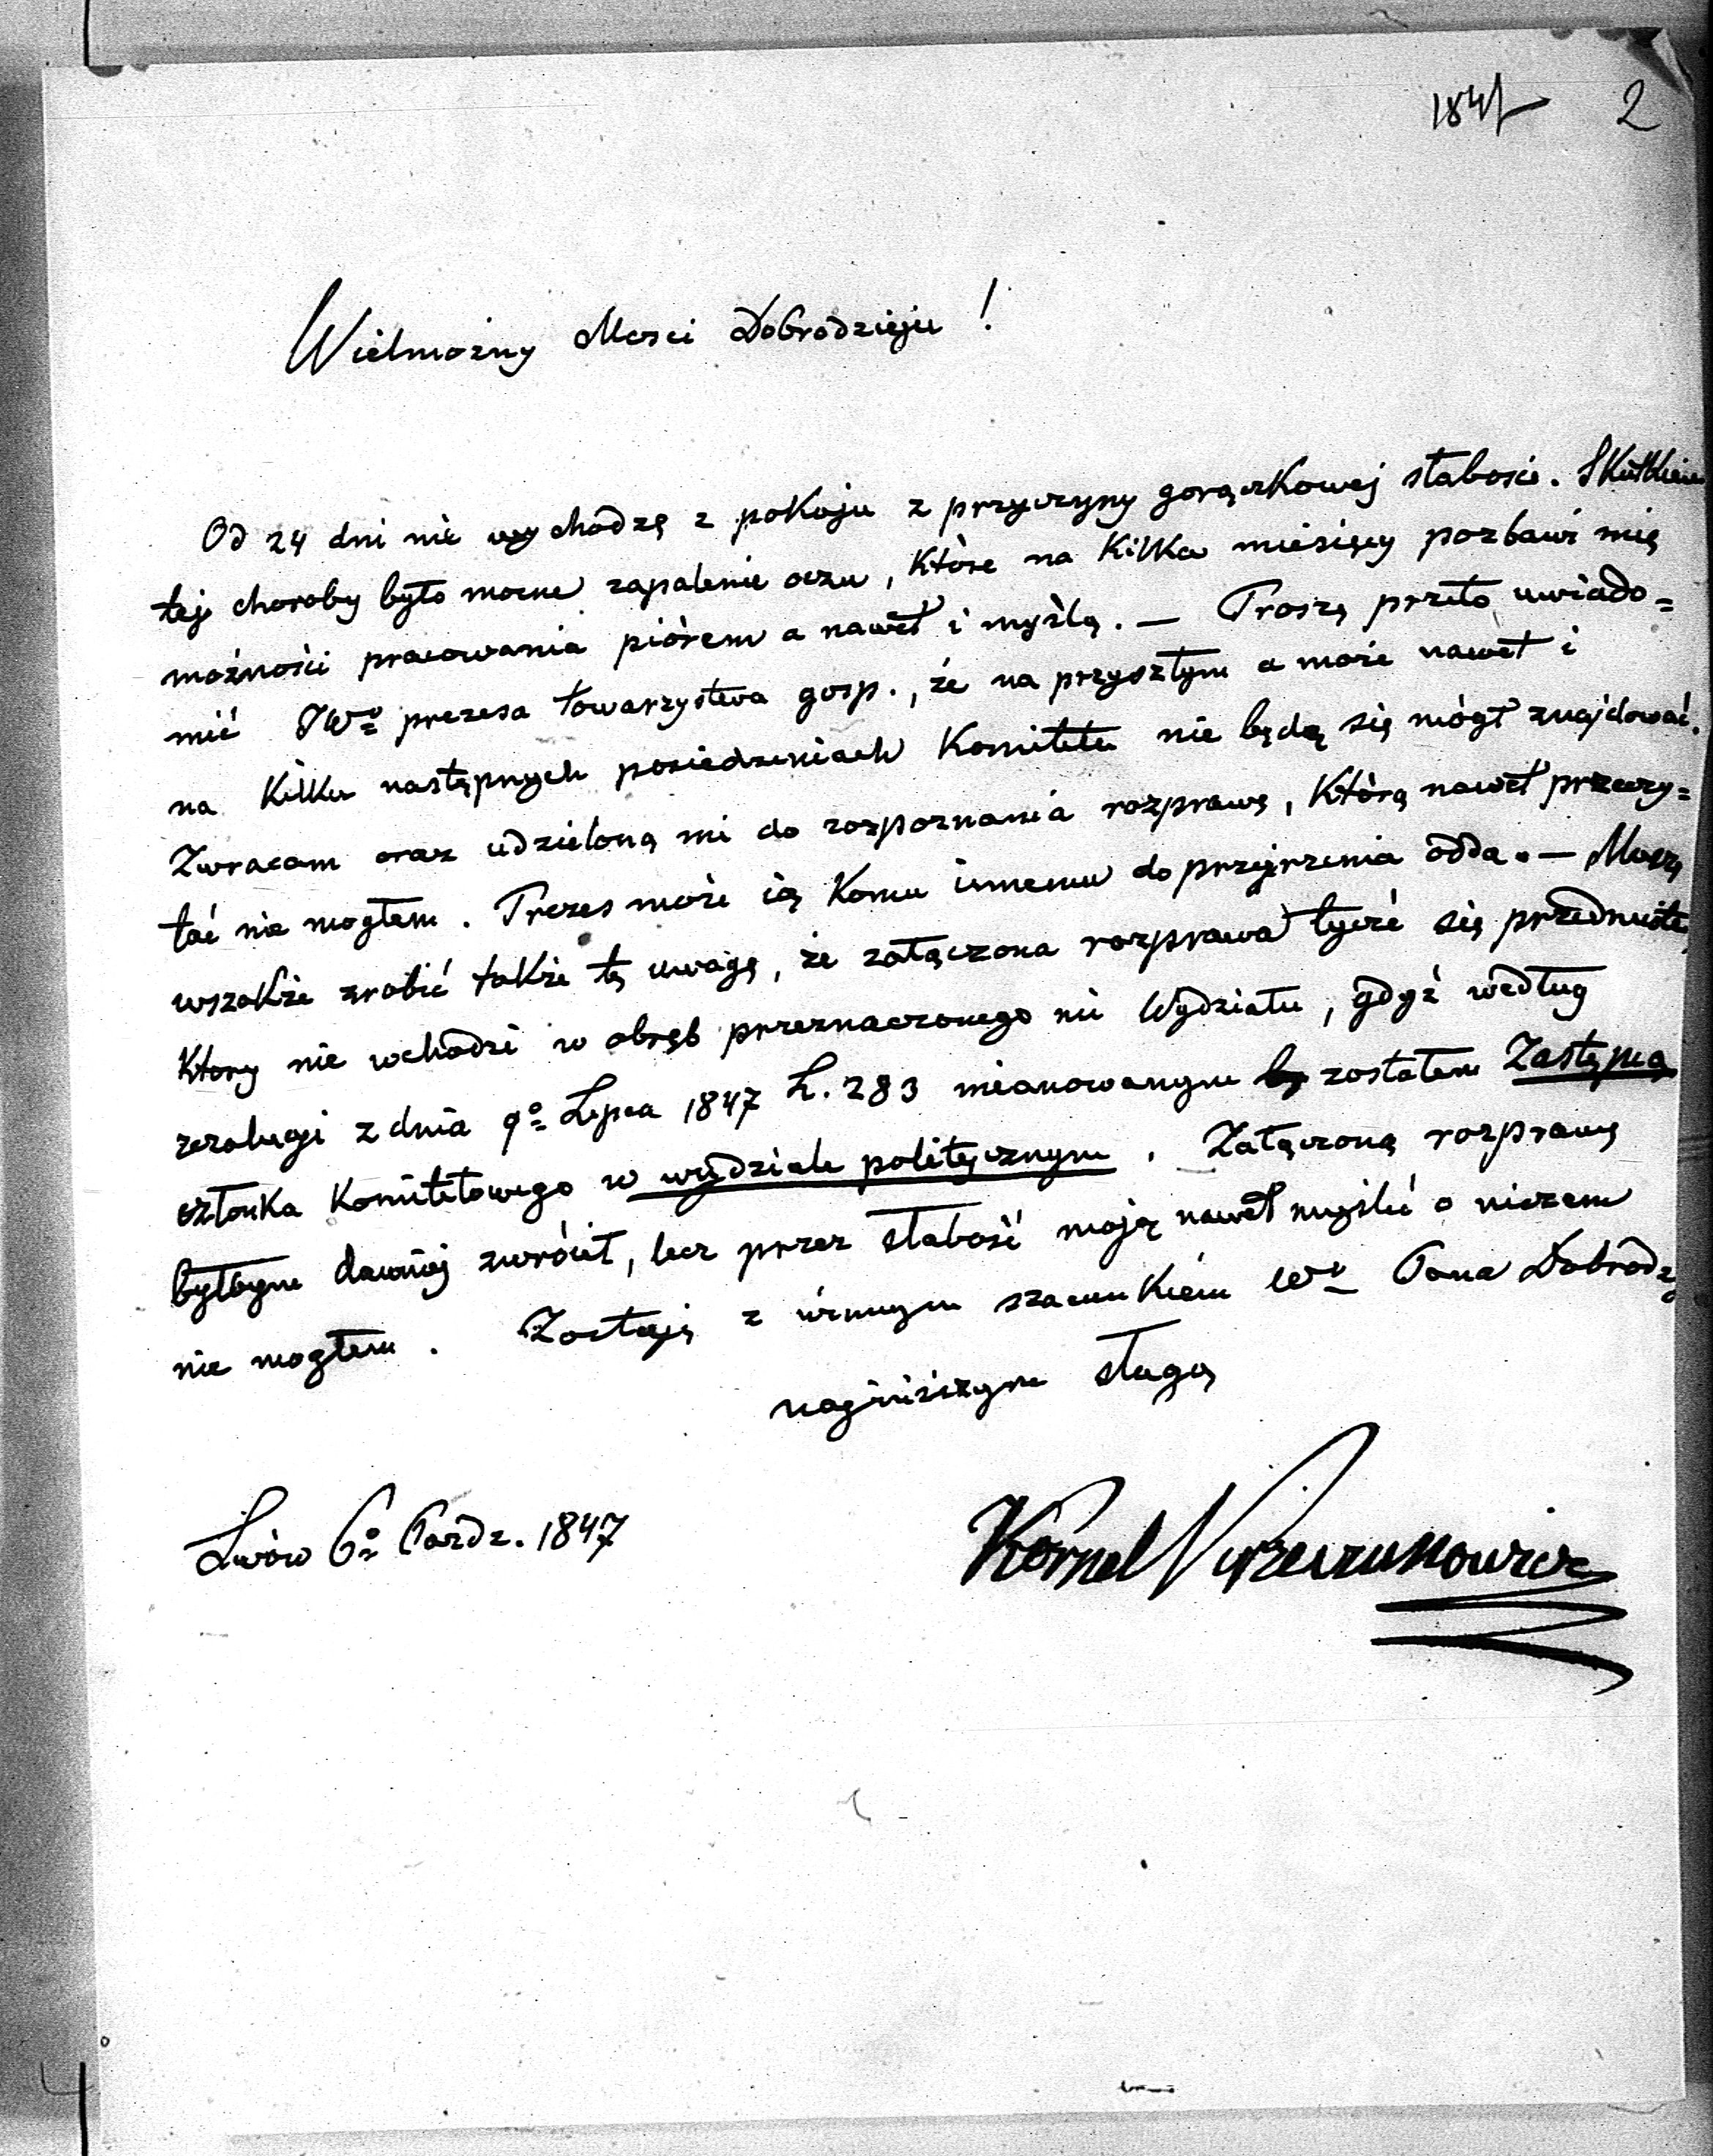 1847 2
Wielmożny Mości Dobrodzieju !
Od 24 dni nie wychodzę z pokoju z przyczyny gorączkowej słabości. Skutkiem
tej choroby było mocne zapalenie oczu, które na kilka miesięcy pozbawi mię
możności pracowania piórem a nawet i myślą. — Proszę przeto uwiado=
mić JWº prezesa towarzystwa gosp., że na przyszłym a może nawet i
na kilku następnych posiedzeniach Komitetu nie będę się mógł znajdować.
Zwracam oraz udzieloną mi do rozpoznania rozprawę, którą nawet przeczy=
tać nie mogłem. Prezes może ią komu innemu do przejrzenia odda. — Muszę
wszakże zrobić także tę uwagę, że załączona rozprawa tycze się przedmiotu,
ktory nie wchodzi w obręb przeznaczonego mi Wydziału, gdyż według
rezolucyi z dnia 9º Lipca 1847 L. 283 mianowanym zostałem Zastępcą
członka Komitetowego w wydziale politycznym. Załączoną rozprawę
byłbym dawniej zwrócił, lecz przez słabość moją nawet myślić o niczem
nie mogłem. Zostaję z winnym szacunkiem Wº Pana Dobrodz
najniższym sługą
Lwów 6º Pazdz. 1847
Kornel